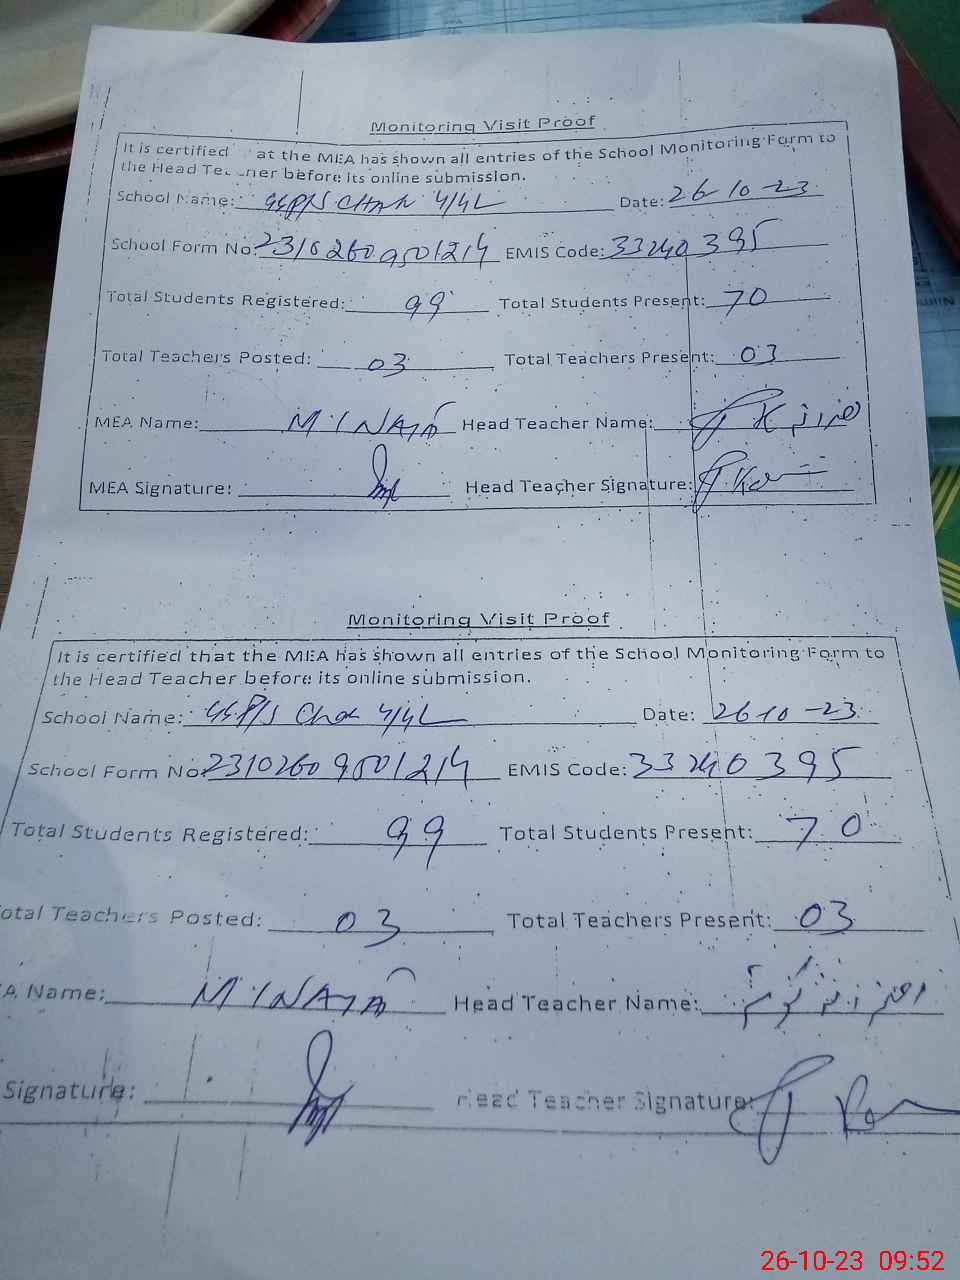 Monitoring Visit Proof
It is certified at the MEA has shown all entries of the School Monitoring Form to
the Head Te ner before its online submission.
School Name: GGP/S CHAK 4/4L Date: 26-10-23
School Form No: 23102609501214 EMIS Code: 33240395
Total Students Registered: 99 Total Students Present: 70
Total Teachers Posted: 03 Total Teachers Present: 03
MEA Name: M INAYA Head Teacher Name:
MEA Signature: Head Teacher Signature:
Monitoring Visit Proof
It is certified that the MEA has shown all entries of the School Monitoring Form to
the Head Teacher before its online submission.
School Name: GGP/S Chak 4/4L Date: 26-10-23
School Form No: 23102609501214 EMIS Code: 33240395
Total Students Registered: 99 Total Students Present: 70
otal Teachers Posted: 03 Total Teachers Present: 03
A Name: M INAYA Head Teacher Name:
Signature: Head Teacher Signature:
26-10-23 09:52